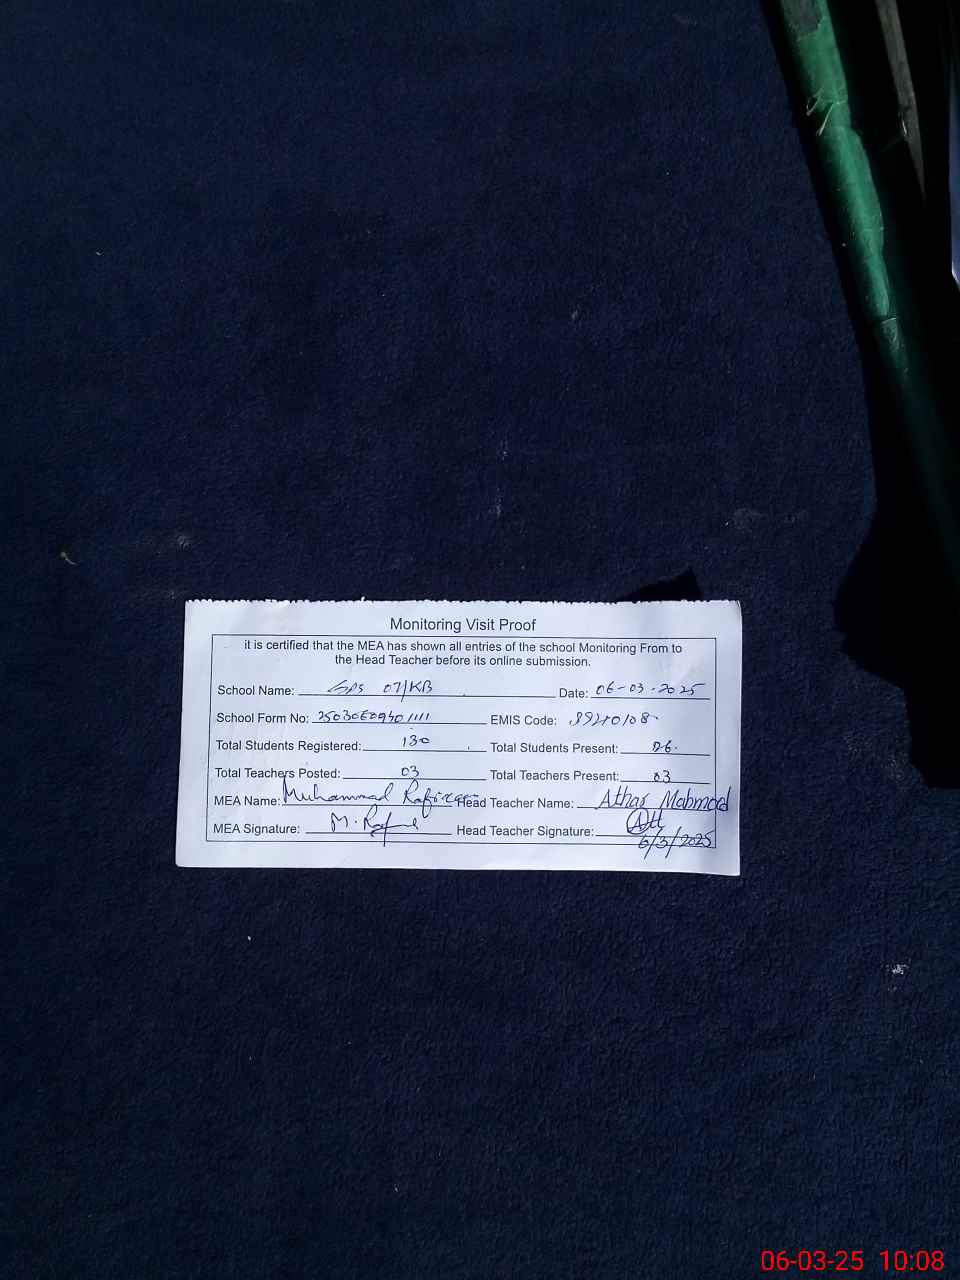 Monitoring Visit Proof
it is certified that the MEA has shown all entries of the school Monitoring From to
the Head Teacher before its online submission.
School Name: GPS 07/KB Date: 06-03-2025
School Form No: EMIS Code:
Total Students Registered: 130 Total Students Present:
Total Teachers Posted: 03 Total Teachers Present: 03
MEA Name: Muhammad Head Teacher Name: Athar Mahmood
MEA Signature: Head Teacher Signature:
6/3/2025
06-03-25 10:08